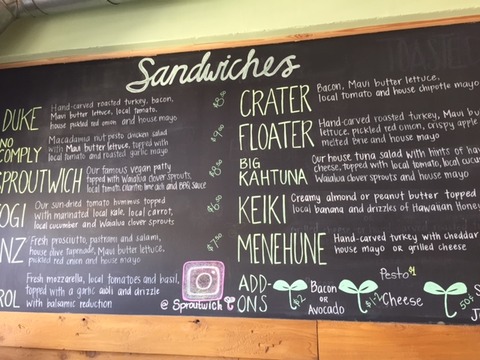 Sandwiches
DUKE
Hand-carved roasted turkey, bacon,
Maui butter lettuce, local tomato,
house pickled red onion and house mayo
NO
COMPLY
Macadamia nut pesto chicken salad
with Maui butter lettuce, topped with
local tomato and roasted garlic mayo
SPROUTWICH
Our famous vegan patty
topped with Waialua clover sprouts,
local tomato, cilantro lime aioli and BBQ sauce
OGI
Our sun-dried tomato hummus topped
with marinated local kale, local carrot,
local cucumber and Waialua clover sprouts
NZ
Fresh prosciutto, pastrami and salami,
house olive tapenade, Maui butter lettuce,
pickled red onion and house mayo
$7.50
ROL
Fresh mozzarella, local tomatoes and basil,
topped with a garlic aioli and drizzle
with balsamic reduction
@ Sproutwich
CRATER
Bacon, Maui butter lettuce,
local tomato and house chipotle mayo
FLOATER
Hand-carved roasted turkey, Maui bu
lettuce, pickled red onion, crispy apple
melted brie and house mayo
BIG
KAHTUNA
Our house tuna salad with hints of hav
cheese, topped with local tomato, local cucu
Waialua clover sprouts and house mayo
KEIKI
Creamy almond or peanut butter topped
local banana and drizzles of Hawaiian Honey
MENEHUNE
Hand-carved turkey with cheddar
house mayo or grilled cheese
ADD-
ONS
$2
Bacon
or
Avocado
$1-2
Pesto $1
Cheese
50¢
S
J